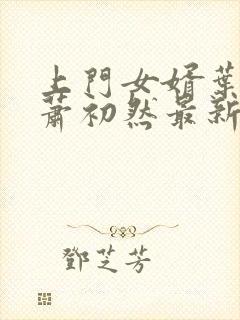 上門女婿葉
蕭初然最新
鄧芝芳